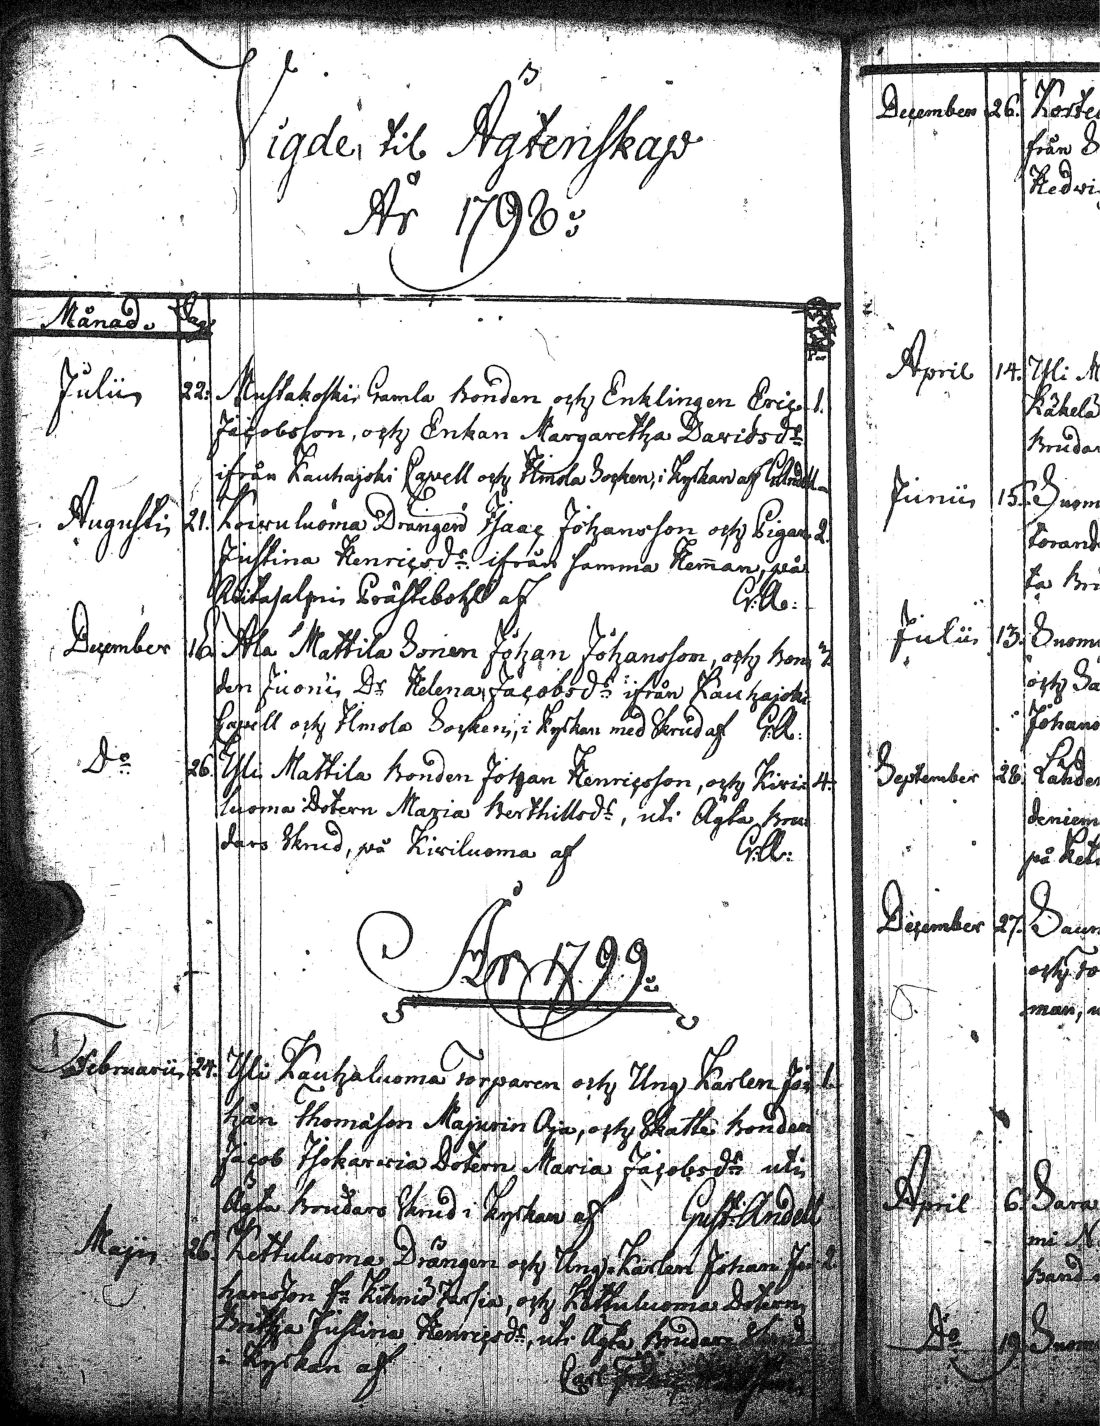 Vigde til Ägtenskap
År 1798:
Månad. Dag
Par
Julii 22: Mustakoski Gamla bonden och Enklingen Eric 1.
Jacobsson, och Enkan Margaretha Davidsdr
ifrån Kauhajoki Capell och Ilmola Socken, i Kyrkan af
Augusti 21. Koivuluoma Drängen Isaac Johansson och Pigan 2.
Justina Henricsdr ifrån samma Hemman, på
Prästebohl af G:A:
December 16. Ala Mattila Sonen Johan Johansson, och bon 3
den Juonis Dr Helena Jacobsdr ifrån Kauhajoki
Capell och Ilmola Socken, i Kyrkan med Skrud af G:A:
Do 26. Yli Mattila bonden Johan Henricsson, och Kivi 4.
luoma Dotern Maria Berthillsdr, uti Ägta Bru
dars Skrud, på Kiviluoma af G:A:
År 1799:
Februarii 24. Yli Kauhaluoma Torparen och Ung Karlen Jo 1.
han Thomason Majurin Oja, och Skatte bonden
Jacob Dotern Maria Jacobsdr uti
Ägta Brudars Skrud i Kyrkan af Gust: Andell
Maji 26. Kettuluoma Drängen och Ung Karlen Johan Jo 2.
hansson fr och Kettuluoma Dotern
Britha Justina Henricsdr, uti Ägta Brudars Skrud
i Kyrkan af Carl
December 26.
från
Hedwi
April 14. Yli M
Käkelä
brudar
Junii 15. Suom
torand
ta Bru
Julii 13. Suom
och Sa
Johans
September 28. Lahde
på Ket
December 27. Saun
och To
man, u
April 6. Sara
mi N
band
Do 19. Suom